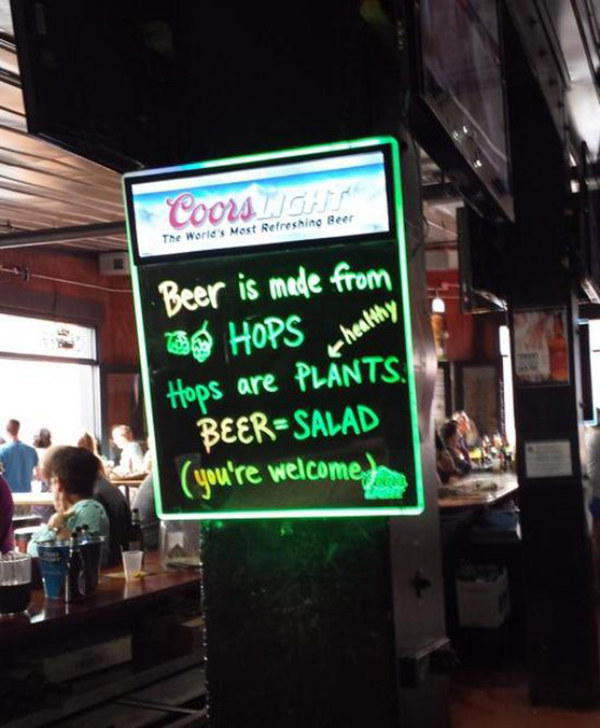 Coors LIGHT
The World's Most Refreshing Beer
Beer is made from
HOPS
healthy
Hops are PLANTS.
BEER = SALAD
(you're welcome)
Coors
LIGHT